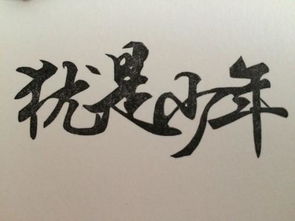 犹是少年